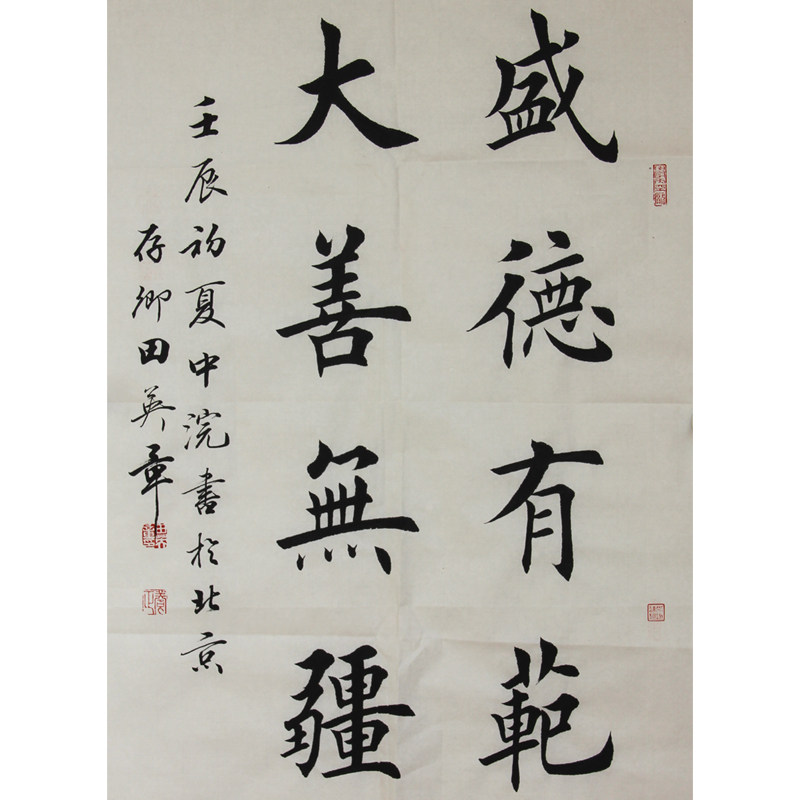 盛德有範
大善無疆
壬辰初夏中浣書於北京
存卿田英章